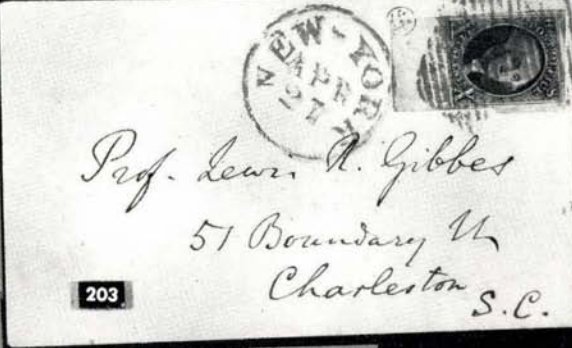 NEW-YORK
APR
27
Prof. Lewis R. Gibbes
51 Boundary St
Charleston
S.C.
203